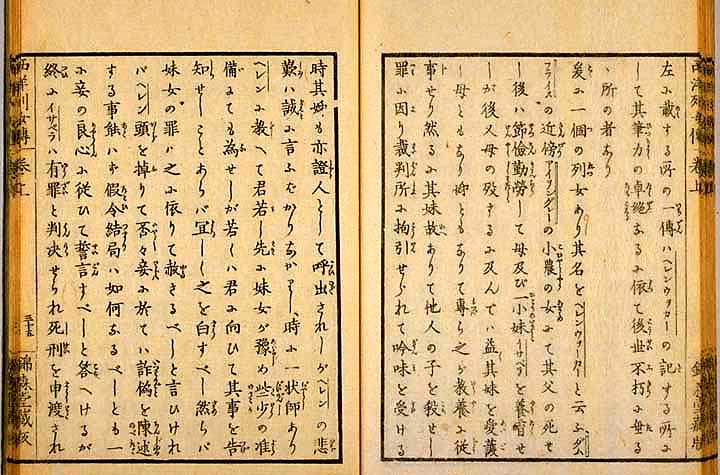 左に載する所の一傳ハヘレンウヲカーの記する所に
して其筆力の卓絶なるに依て後世不朽に
、所の者あり
爰に一個の列女あり其名をヘレンウヲーカーと云ふダム
フライスの近傍アイアングレーの小農の女にて其父の死せ
し後ハ節儉勤勞して母及び一小妹イサベラを養育せ
しが後又母の歿するに及んでハ益其妹を愛護
し母ともなり姉ともなりて專ら之が教養に從
事せり然るに其妹故ありて他人の子を殺せし
罪に因り裁判所に拘引せられて吟味を受ける
時其姉も亦證人として呼出されしがヘレンの悲
歎ハ誠に言ふばかりなかりし時に一状師あり
ヘレンに教へて君若し先に妹女が豫め些少の准
備にても為せしか若くハ君に向ひて其事を告
知せしことあらバ宜しく之を白すべし然らバ
妹女の罪ハ之に依りて赦さるべしと言ひけれ
バヘレン頭を掉りて否々妾に於てハ詐偽を陳述
する事能ハず假令結局ハ如何なるべしとも一
に妾の良心に從ひて誓言すべしと答へけるが
終にイサベラハ有罪と判決せられ死刑を申渡され
西洋列女傳 巻之上
三十五
錦森堂藏版